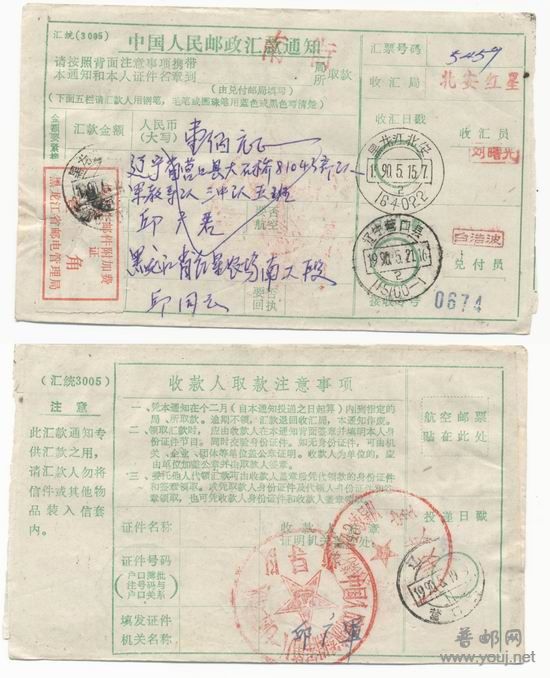 汇统(3005)
中国人民邮政汇款通知
汇票号码
5459
请按照背面注意事项携带
本通知和本人证件名章到
局
所
取款
收汇局
北安红星
(由兑付邮局填写)
(下面五栏请汇款人用钢笔,毛笔或圆珠笔用蓝色或黑色写清楚)
收汇日戳
汇款金额
人民币
(大写)
黑龙江北安
1990.5.15.7
2
164022
刘曙光
辽宁省营口县大石桥81043部队
三中队五班
黑龙江省红星农场南工段
要否
航空
要否
回执
邮件附加费
证
角
黑龙江省邮电管理局
辽宁营口县
1990.5.21.16
2
115100-1
白浩波
兑付员
接收号码
0674
(汇统3005)
注意
此汇款通知专
供汇款之用,
请汇款人勿将
信件或其他物
品装入信套
内。
收款人取款注意事项
一、凭本通知在个二月(自本通知投递之日起算)内到指定的
局、所取款。逾期不领,汇款退回收汇局,本通知作废。
二、领取汇款时,应由收款人在本通知背面签章并填明本人身
份证件节目。同时交验身份证件。如无身份证件,可由机
关、企业、团体等单位加盖公章证明。收款人为单位的,应
由单位加盖公章并由取款人签章。
三、委托他人代领汇款可由收款人盖章后凭代领款的身份证件
和签章领取。或凭取款人身份证件及代领人身份证件和签
章领取,也可凭收款人身份证件和收款人盖章领取。
航空邮票
贴在此处
投递日戳
证件名称
收款人签章
证明机关
证件号码
户口簿批
注号码与
户口关系
填发证件
机关名称
邱广军
普邮网
www.youj.net